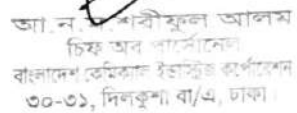 আ. ন. ম. শরীফুল আলম
চিফ অব পার্সোনেল
বাংলাদেশ কেমিক্যাল ইন্ডাস্ট্রিজ কর্পোরেশন
৩০-৩১, দিলকুশা বা/এ, ঢাকা।